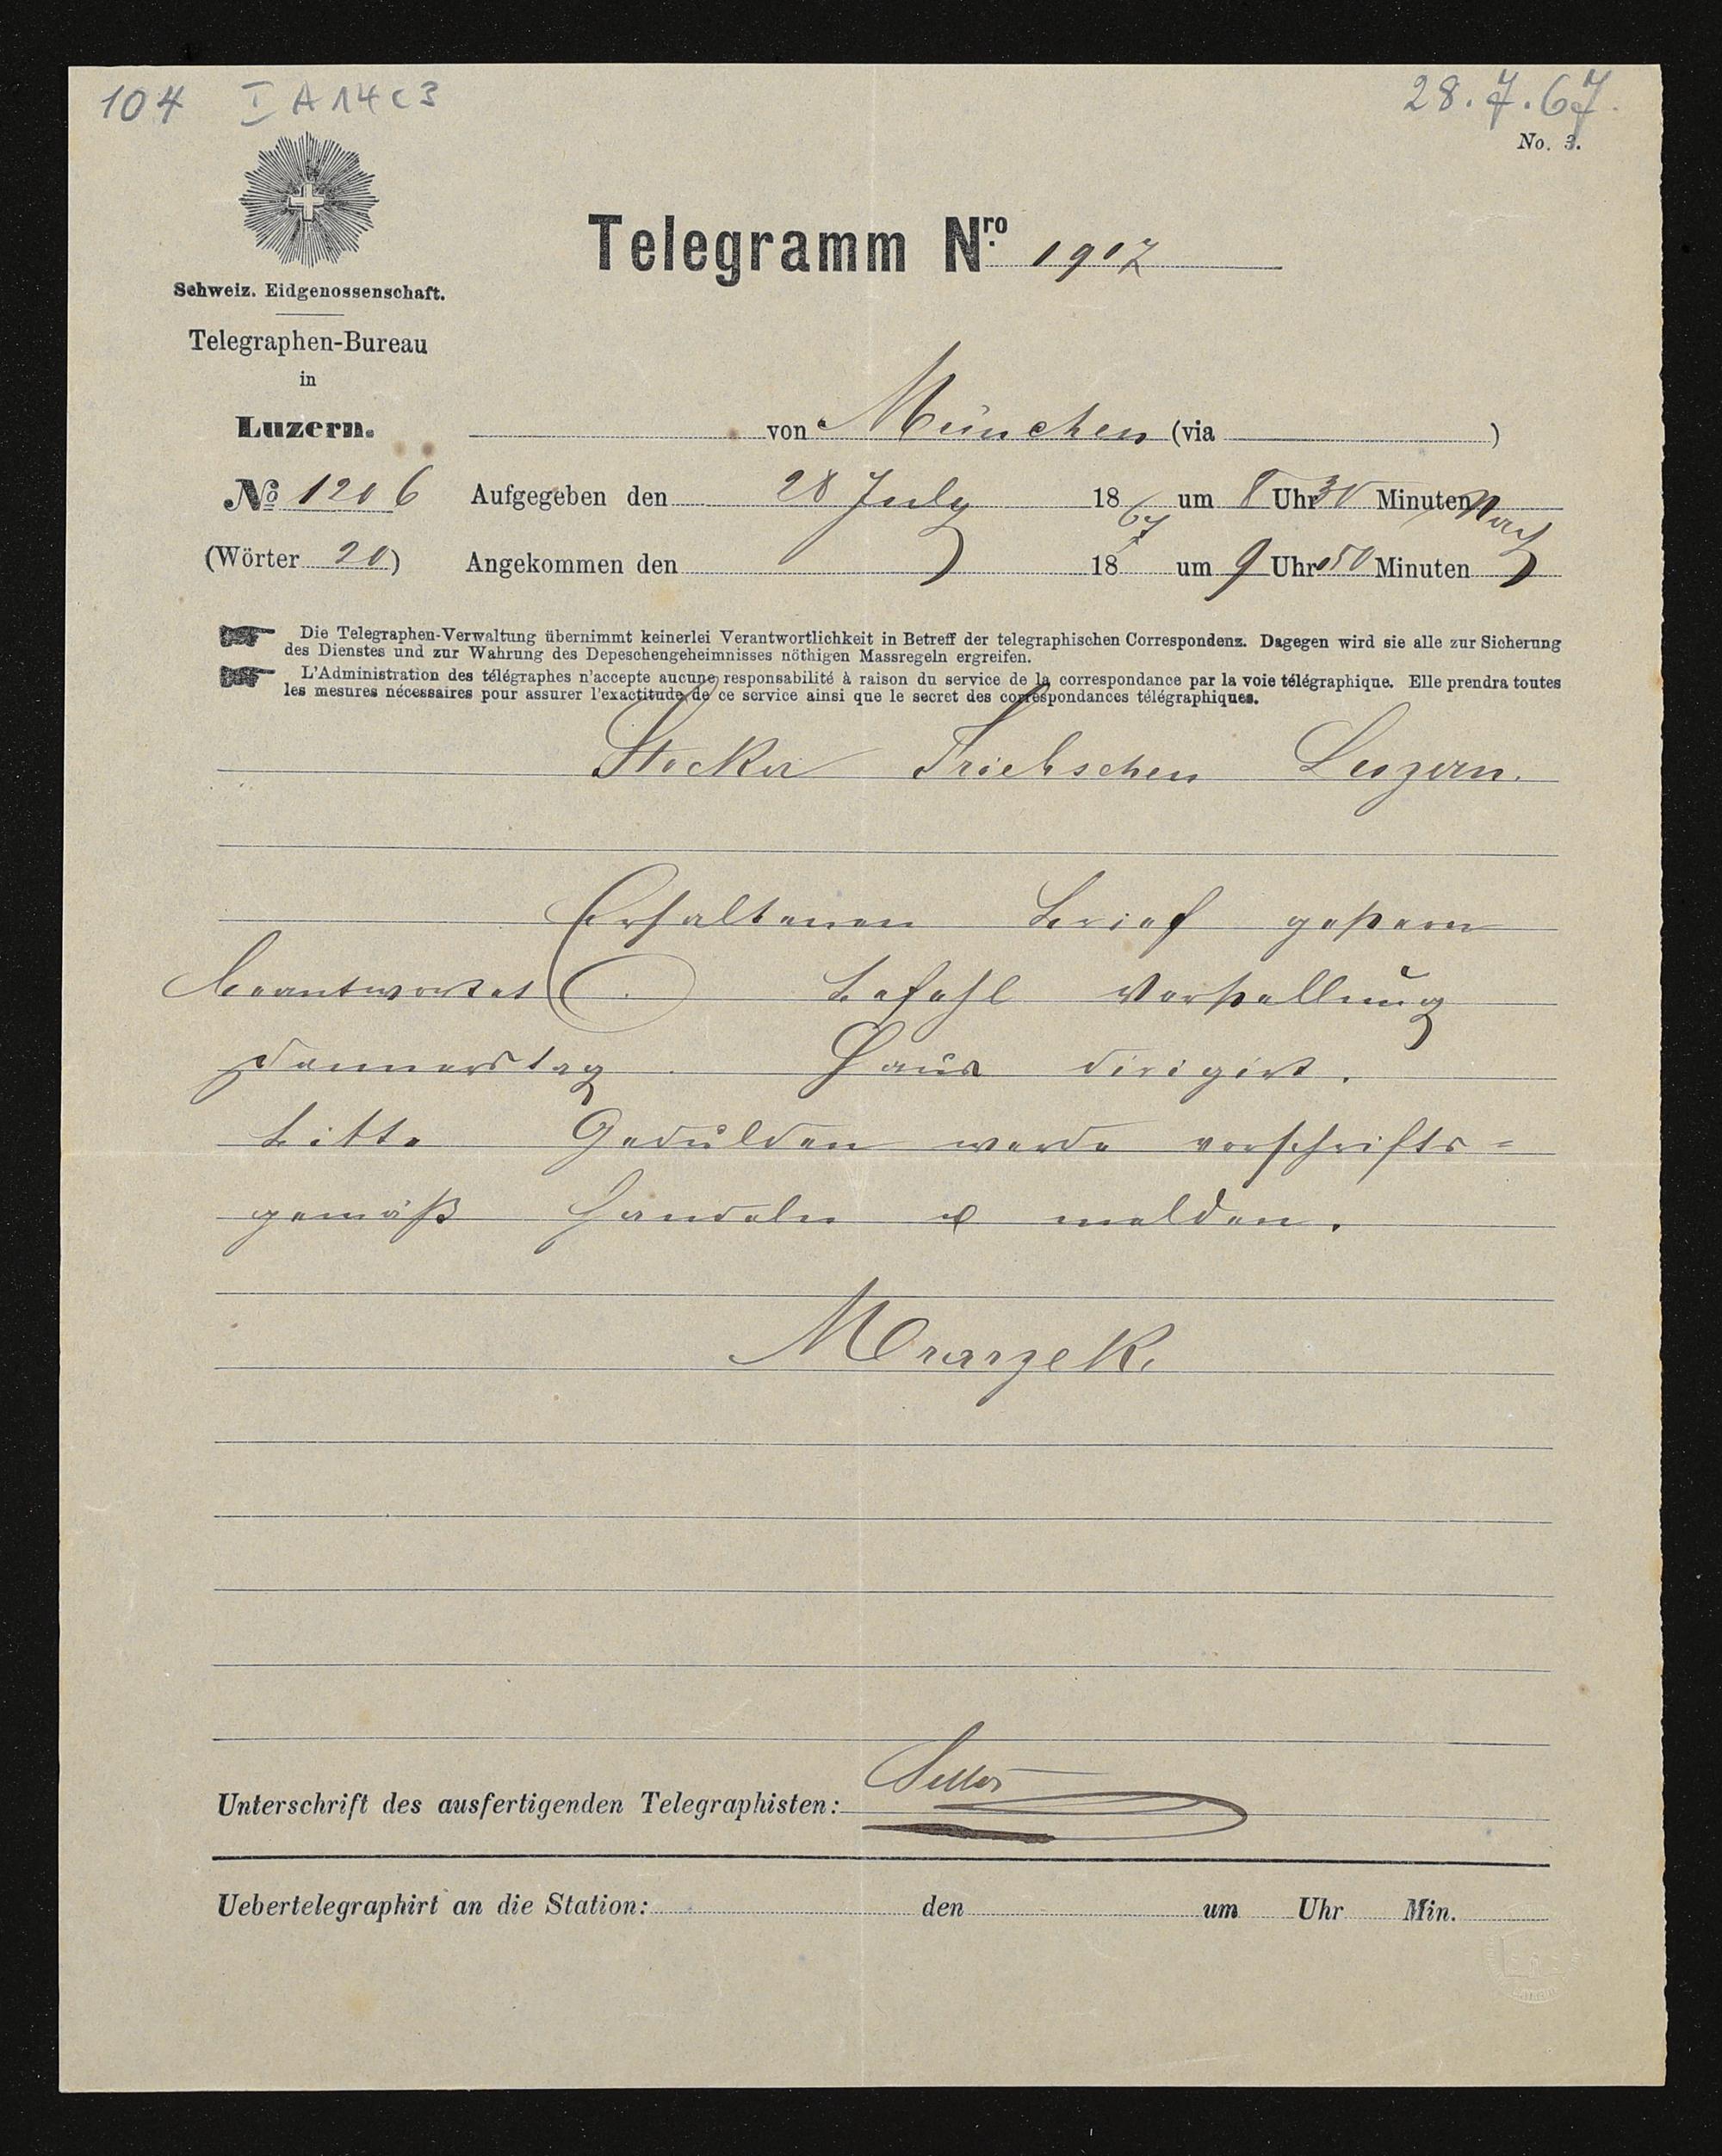 104 I A 14 c 3
28.7.67.
No. 3.
Telegramm Nro. 1917
Schweiz. Eidgenossenschaft.
Telegraphen-Bureau
in
Luzern.
von München (via )
No 1206 Aufgegeben den 28 July 1867 um 8 Uhr 30 Minuten Nach
(Wörter 20) Angekommen den 18 um 9 Uhr 50 Minuten
Die Telegraphen-Verwaltung übernimmt keinerlei Verantwortlichkeit in Betreff der telegraphischen Correspondenz. Dagegen wird sie alle zur Sicherung
des Dienstes und zur Wahrung des Depeschengeheimnisses nöthigen Massregeln ergreifen.
L'Administration des télégraphes n'accepte aucune responsabilité à raison du service de la correspondance par la voie télégraphique. Elle prendra toutes
les mesures nécessaires pour assurer l'exactitude de ce service ainsi que le secret des correspondances télégraphiques.
Stocker Triebschen Luzern.
Erhaltenen brief gestern
beantwortet. befahl Vorstellung
Donnerstag. Hans dirigirt.
bitte Gedulden werde vorschrifts=
gemäß handeln & melden.
Mrarzek.
Unterschrift des ausfertigenden Telegraphisten:
Uebertelegraphirt an die Station: den um Uhr Min.